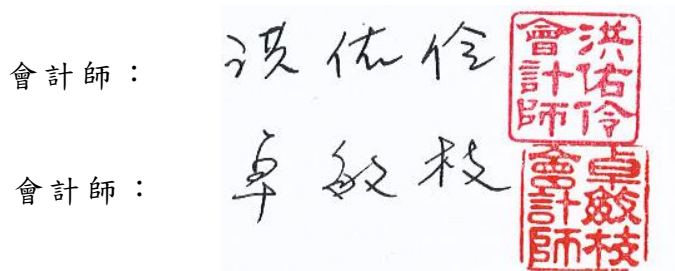 會計師： 洪佑伶
洪佑伶
會計師
會計師： 卓敏枝
卓敏枝
會計師